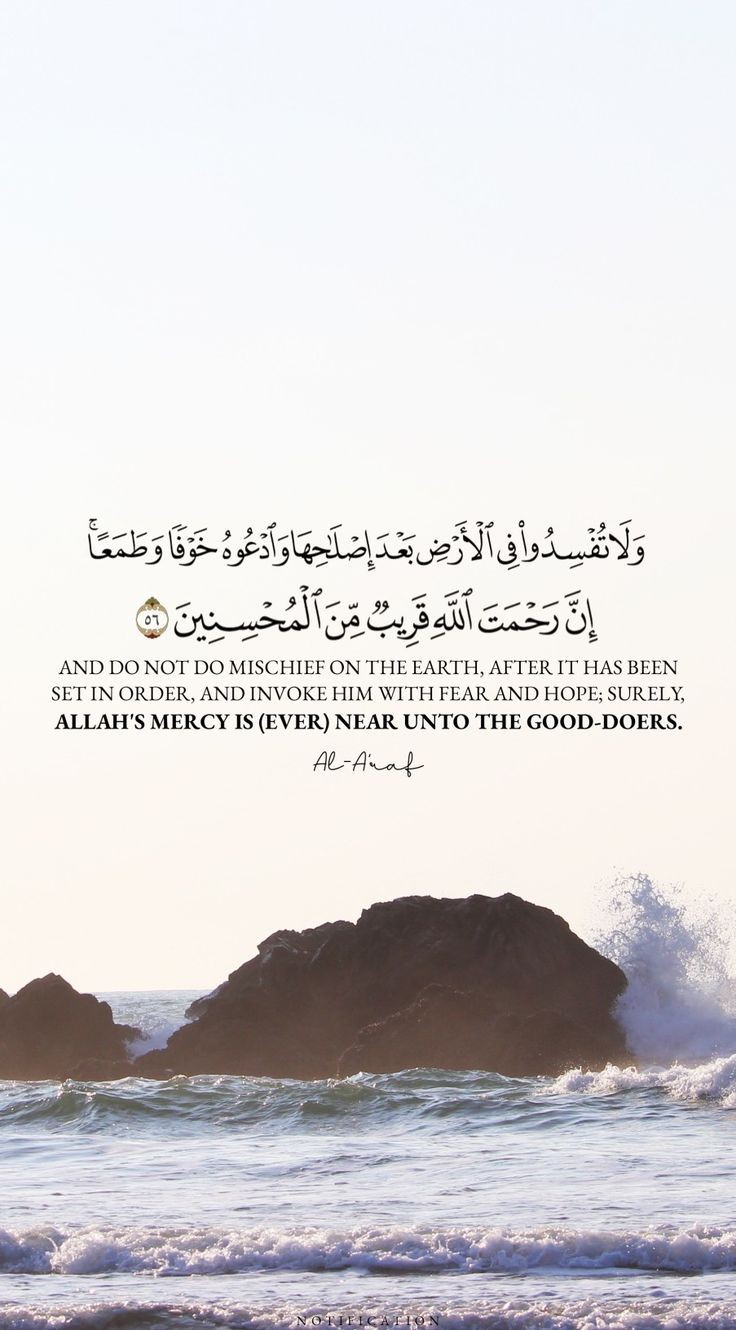 وَلَا تُفْسِدُوا۟ فِى ٱلْأَرْضِ بَعْدَ إِصْلَـٰحِهَا وَٱدْعُوهُ خَوْفًا وَطَمَعًا ۚ
إِنَّ رَحْمَتَ ٱللَّهِ قَرِيبٌ مِّنَ ٱلْمُحْسِنِينَ ٥٦
AND DO NOT DO MISCHIEF ON THE EARTH, AFTER IT HAS BEEN
SET IN ORDER, AND INVOKE HIM WITH FEAR AND HOPE; SURELY,
ALLAH'S MERCY IS (EVER) NEAR UNTO THE GOOD-DOERS.
Al-A'raf
NOTIFICATION